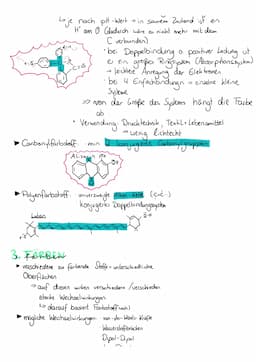 ↳ je nach pH-Wert → in saurem Zustand ist ein
H⁺ am O (dadurch wäre es nicht mehr mit dem
C verbunden)
• bei Doppelbindung & positiver Ladung ist
es ein großes Ringsystem (Absorptionssystem)
→ leichtere Anregung der Elektronen
• bei 4 Einfachbindungen = einzelne kleine
Systeme
⇒ von der Größe des Systems hängt die Farbe
ab
• Verwendung: Drucktechnik, Textil + Lebensmittel
→ wenig lichtecht
▸ Carbonylfarbstoff: min. 2 konjugierte Carbonylgruppen
Alizarin
▸ Polyenfarbstoff: unverzweigte
konjugierte Doppelbindungssysteme
Lutein
3. FÄRBEN
▸ verschiedene zu färbende Stoffe = unterschiedliche
Oberflächen
→ auf diesen wirken verschiedene/verschieden
starke Wechselwirkungen
↳ darauf basiert Farbstoffwahl
▸ mögliche Wechselwirkungen: Van-der-Waals-Kräfte
Wasserstoffbrücken
Dipol-Dipol